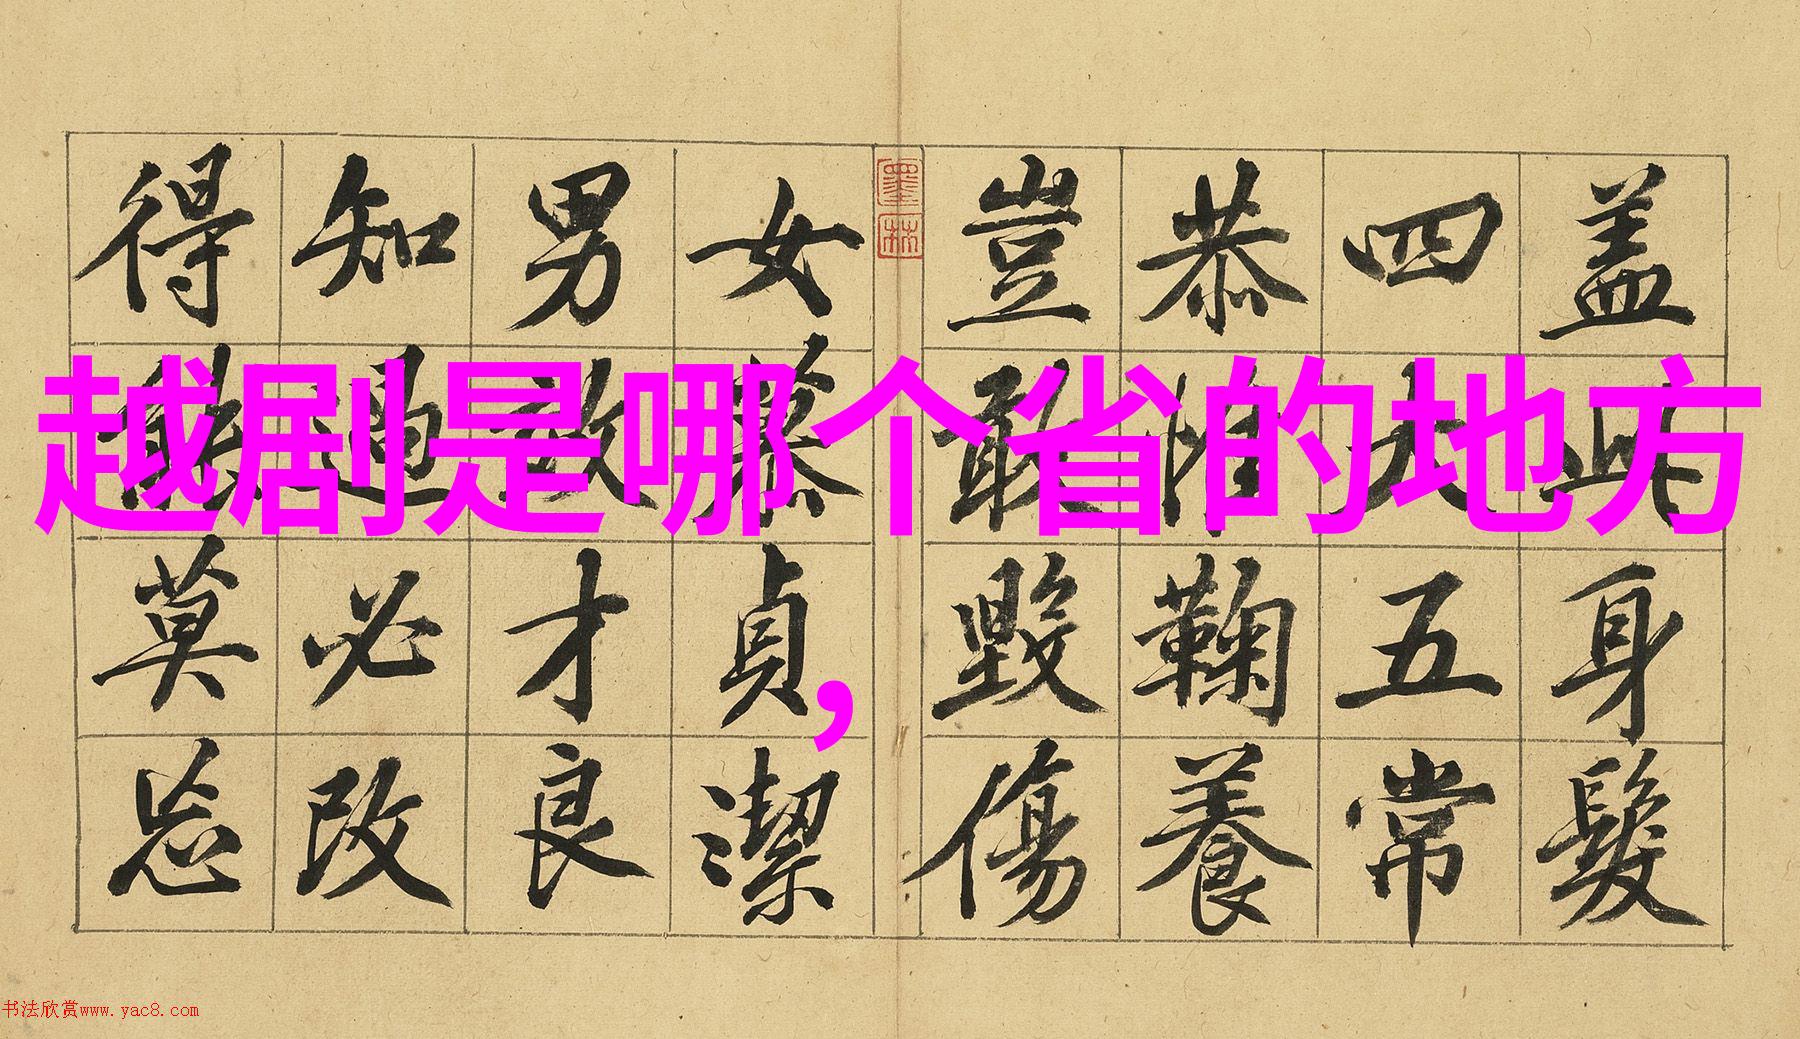 越剧是哪个省的地方
，
盖此身髮
四大五常
恭惟鞠養
豈敢毀傷
墨林
女慕貞潔
男效才良
知過必改
得能莫忘
书法欣赏www.yac8.com